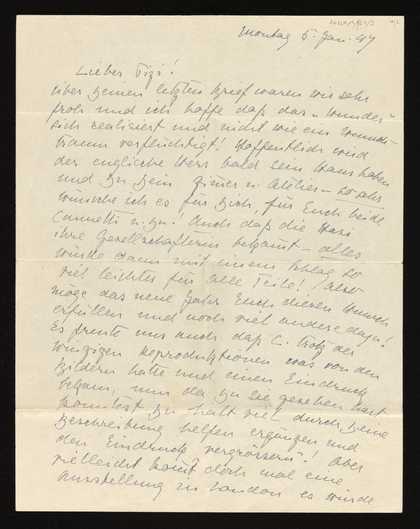 Montag 6. Jan. 47
Lieber Fizi!
über deinen letzten Brief waren wir sehr
froh und ich hoffe daß das "Wunder"
sich realisiert und nicht wie ein Wunsch-
traum verflüchtigt! Hoffentlich wird
der englische Herr bald sein Haus haben
und Du Dein Zimmer u. Atelier – so sehr
wünsche ich es für Dich, für Euch beide
Canetti u. Du! Auch daß die
ihre Gesellschafterin bekommt – alles
würde dann mit einem Schlag so
viel leichter für alle Teile! Also
möge das neue Jahr Euch diesen Wunsch
erfüllen und noch viel andere dazu!
Es freute uns auch daß C. trotz der
winzigen Reproduktionen was von den
Bildern hatte und einen Eindruck
bekam, nun da Du sie gesehen hast
konntest Du halt viel durch Deine
Beschreibung helfen ergänzen und
den Eindruck vergrössern! Aber
vielleicht kommt doch mal eine
Ausstellung in London es würde